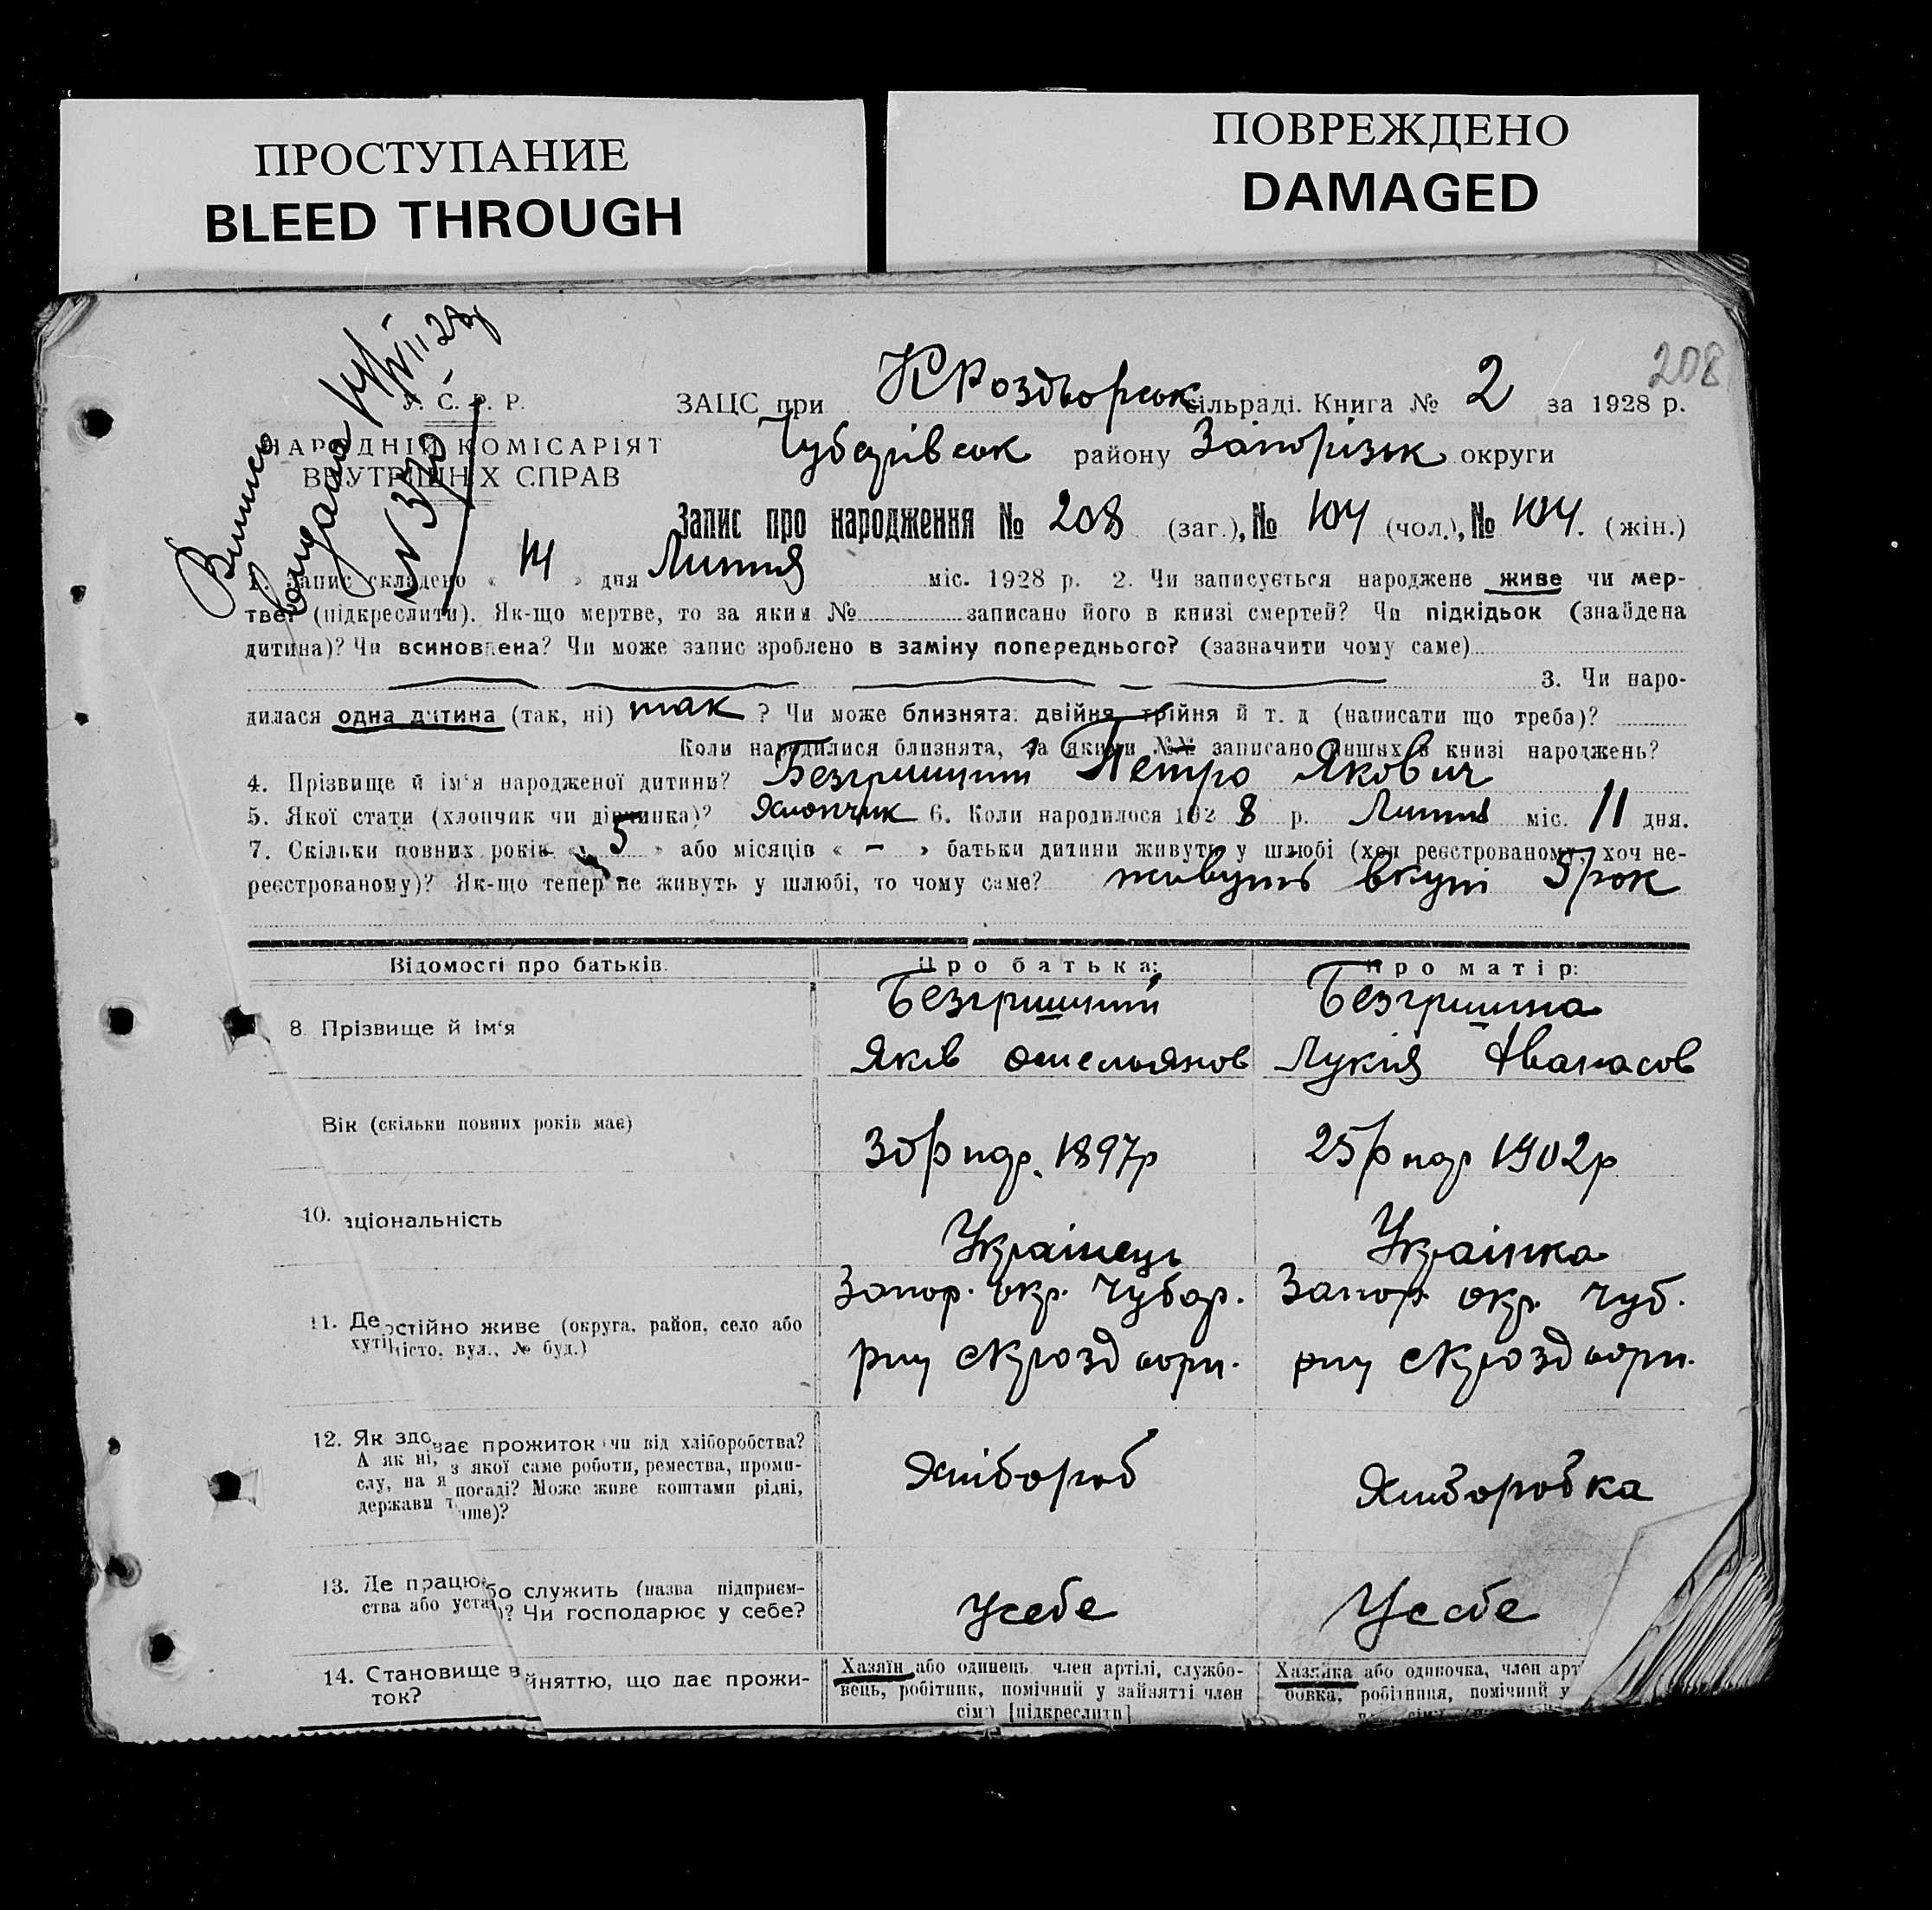 ПРОСТУПАНИЕ
BLEED THROUGH
ПОВРЕЖДЕНО
DAMAGED
208
У. С. Р. Р.
НАРОДНІЙ КОМІСАРІЯТ
ВНУТРІШНІХ СПРАВ
Виписъ
видана
№ 370
ЗАЦС при КРоздорськ сільраді. Книга № 2 за 1928 р.
Чубарівськ району Запорізьк округи
Запис про народження № 208 (заг.), № 104 (чол.), № 104. (жін.)
1. Запис складено « 14 » дня Липня міс. 1928 р. 2. Чи записується народжене живе чи мер-
тве? (підкреслити). Як-що мертве, то за яким № записано його в книзі смертей? Чи підкідьок (знайдена
дитина)? Чи всиновлена? Чи може запис зроблено в заміну попереднього? (зазначити чому саме)
3. Чи наро-
дилася одна дитина (так, ні) так ? Чи може близнята: двійня, трійня й т. д (написати що треба)?
Коли народилися близнята, за якими №№ записано инших в книзі народжень?
4. Прізвище й ім'я народженої дитини? Безгришний Петро Якович
5. Якої стати (хлопчик чи дівчинка)? Хлопчик 6. Коли народилося 1928 р. Липня міс. 11 дня.
7. Скільки повних років « 5 » або місяців « – » батьки дитини живуть у шлюбі (хоч реєстрованому, хоч не-
реєстрованому)? Як-що тепер не живуть у шлюбі, то чому саме? живуть вкупі 5 рок
Відомості про батьків. Про батька: Про матір:
8. Прізвище й ім'я Безгришний Безгришна
Яків Омельянов Лукія Аванасов
Вік (скільки повних років має) 30 р нар. 1897р 25 р нар 1902р
10. аціональність Українець Українка
11. Де остійно живе (округа, район, село або
хутір місто, вул., № буд.)
Запор. окр. Чубар. Запор. окр. Чуб.
рну сКроздори. рну сКроздори.
12. Як здо ває прожиток чи від хліборобства?
А як ні, з якої саме роботи, ремества, проми-
слу, на я посаді? Може живе коштами рідні,
держави т. инше)?
Хлібороб Хліборобка
13. Де працює або служить (назва підприєм-
ства або устан )? Чи господарює у себе?
Усебе Усебе
14. Становище в йняттю, що дає прожи-
ток?
Хазяїн або одинець, член артілі, службо-
вець, робітник, помічний у зайнятті член
сім'ї [підкреслити]
Хазяйка або одиночка, член арт
бовка, робітниця, помічний у